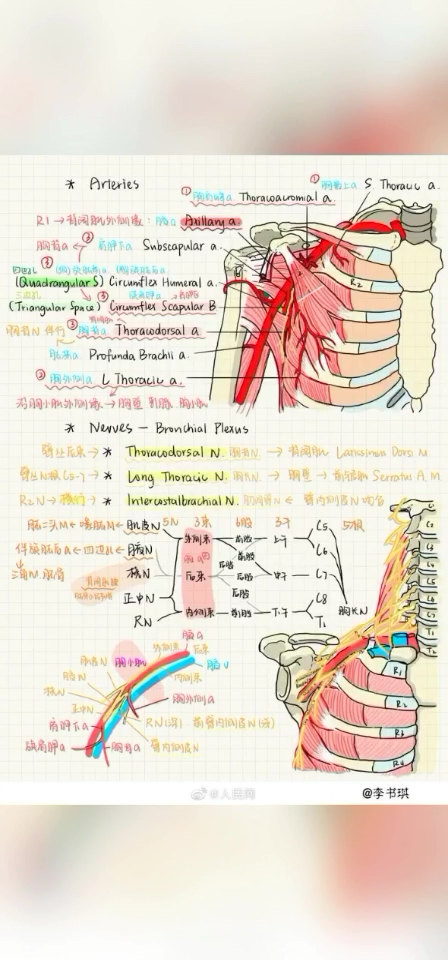 * Arteries
① 胸肩峰a. Thoracoacromial a.
① 胸最上a S Thoracic a.
R1→背阔肌外侧缘: 腋a Axillary a
胸背a ← ② 肩胛下a Subscapular a.
四边孔
(Quadrangular S) Circumflex Humeral a.
三边孔 旋肩胛a
(Triangular Space) Circumflex Scapular B
胸背N 伴行 胸背a Thoracodorsal a.
肱深a Profunda Brachii a.
② 胸外侧a L Thoracic a.
沿胸小肌外侧缘→胸壁 乳腺 胸小肌
R2
* Nerves — Bronchial Plexus
臂丛后束→ * Thoracodorsal N. 胸背N. → 背阔肌 Latissimus Dorsi M
臂丛N根C5-7→ * Long Thoracic N. 胸长N. → 胸壁→前锯肌 Serratus A. M.
R2N→ * Intercostalbrachial N. 肋间臂N ← 臂内侧皮N 吻合
肱二头M←喙肱M←肌皮N 5N 3束 6股 3干 C5 5根
外侧束 前股 上干
伴旋肱后A←四边孔←腋N 后股 C6
三角N.肱肩 桡N 后束 后股 中干 C7
正中N 后股 C8
RN 内侧束 前股 下干 T1
胸长N
腋a
外侧束
后束
腋V
肌皮N 胸小肌 内侧束
腋N
桡N 胸外侧a
正中N
RN(尺) 前臂内侧皮N(尺)
肩胛下a
旋肩胛a 胸背a 臂内侧皮N
R1
R2
R3
R4
@人民网
@李书琪